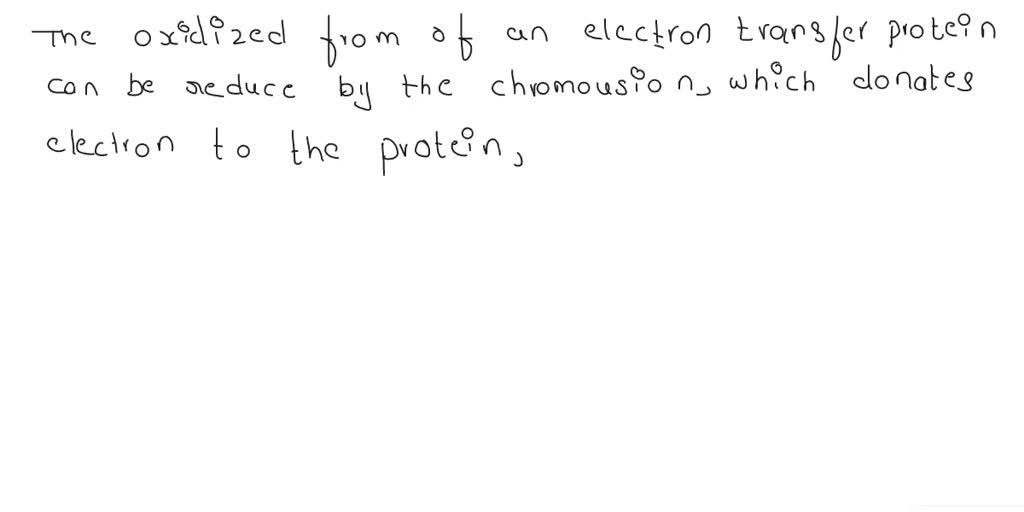 The oxidized from of an electron transfer protein
can be reduce by the chromousion, which donates
electron to the protein,